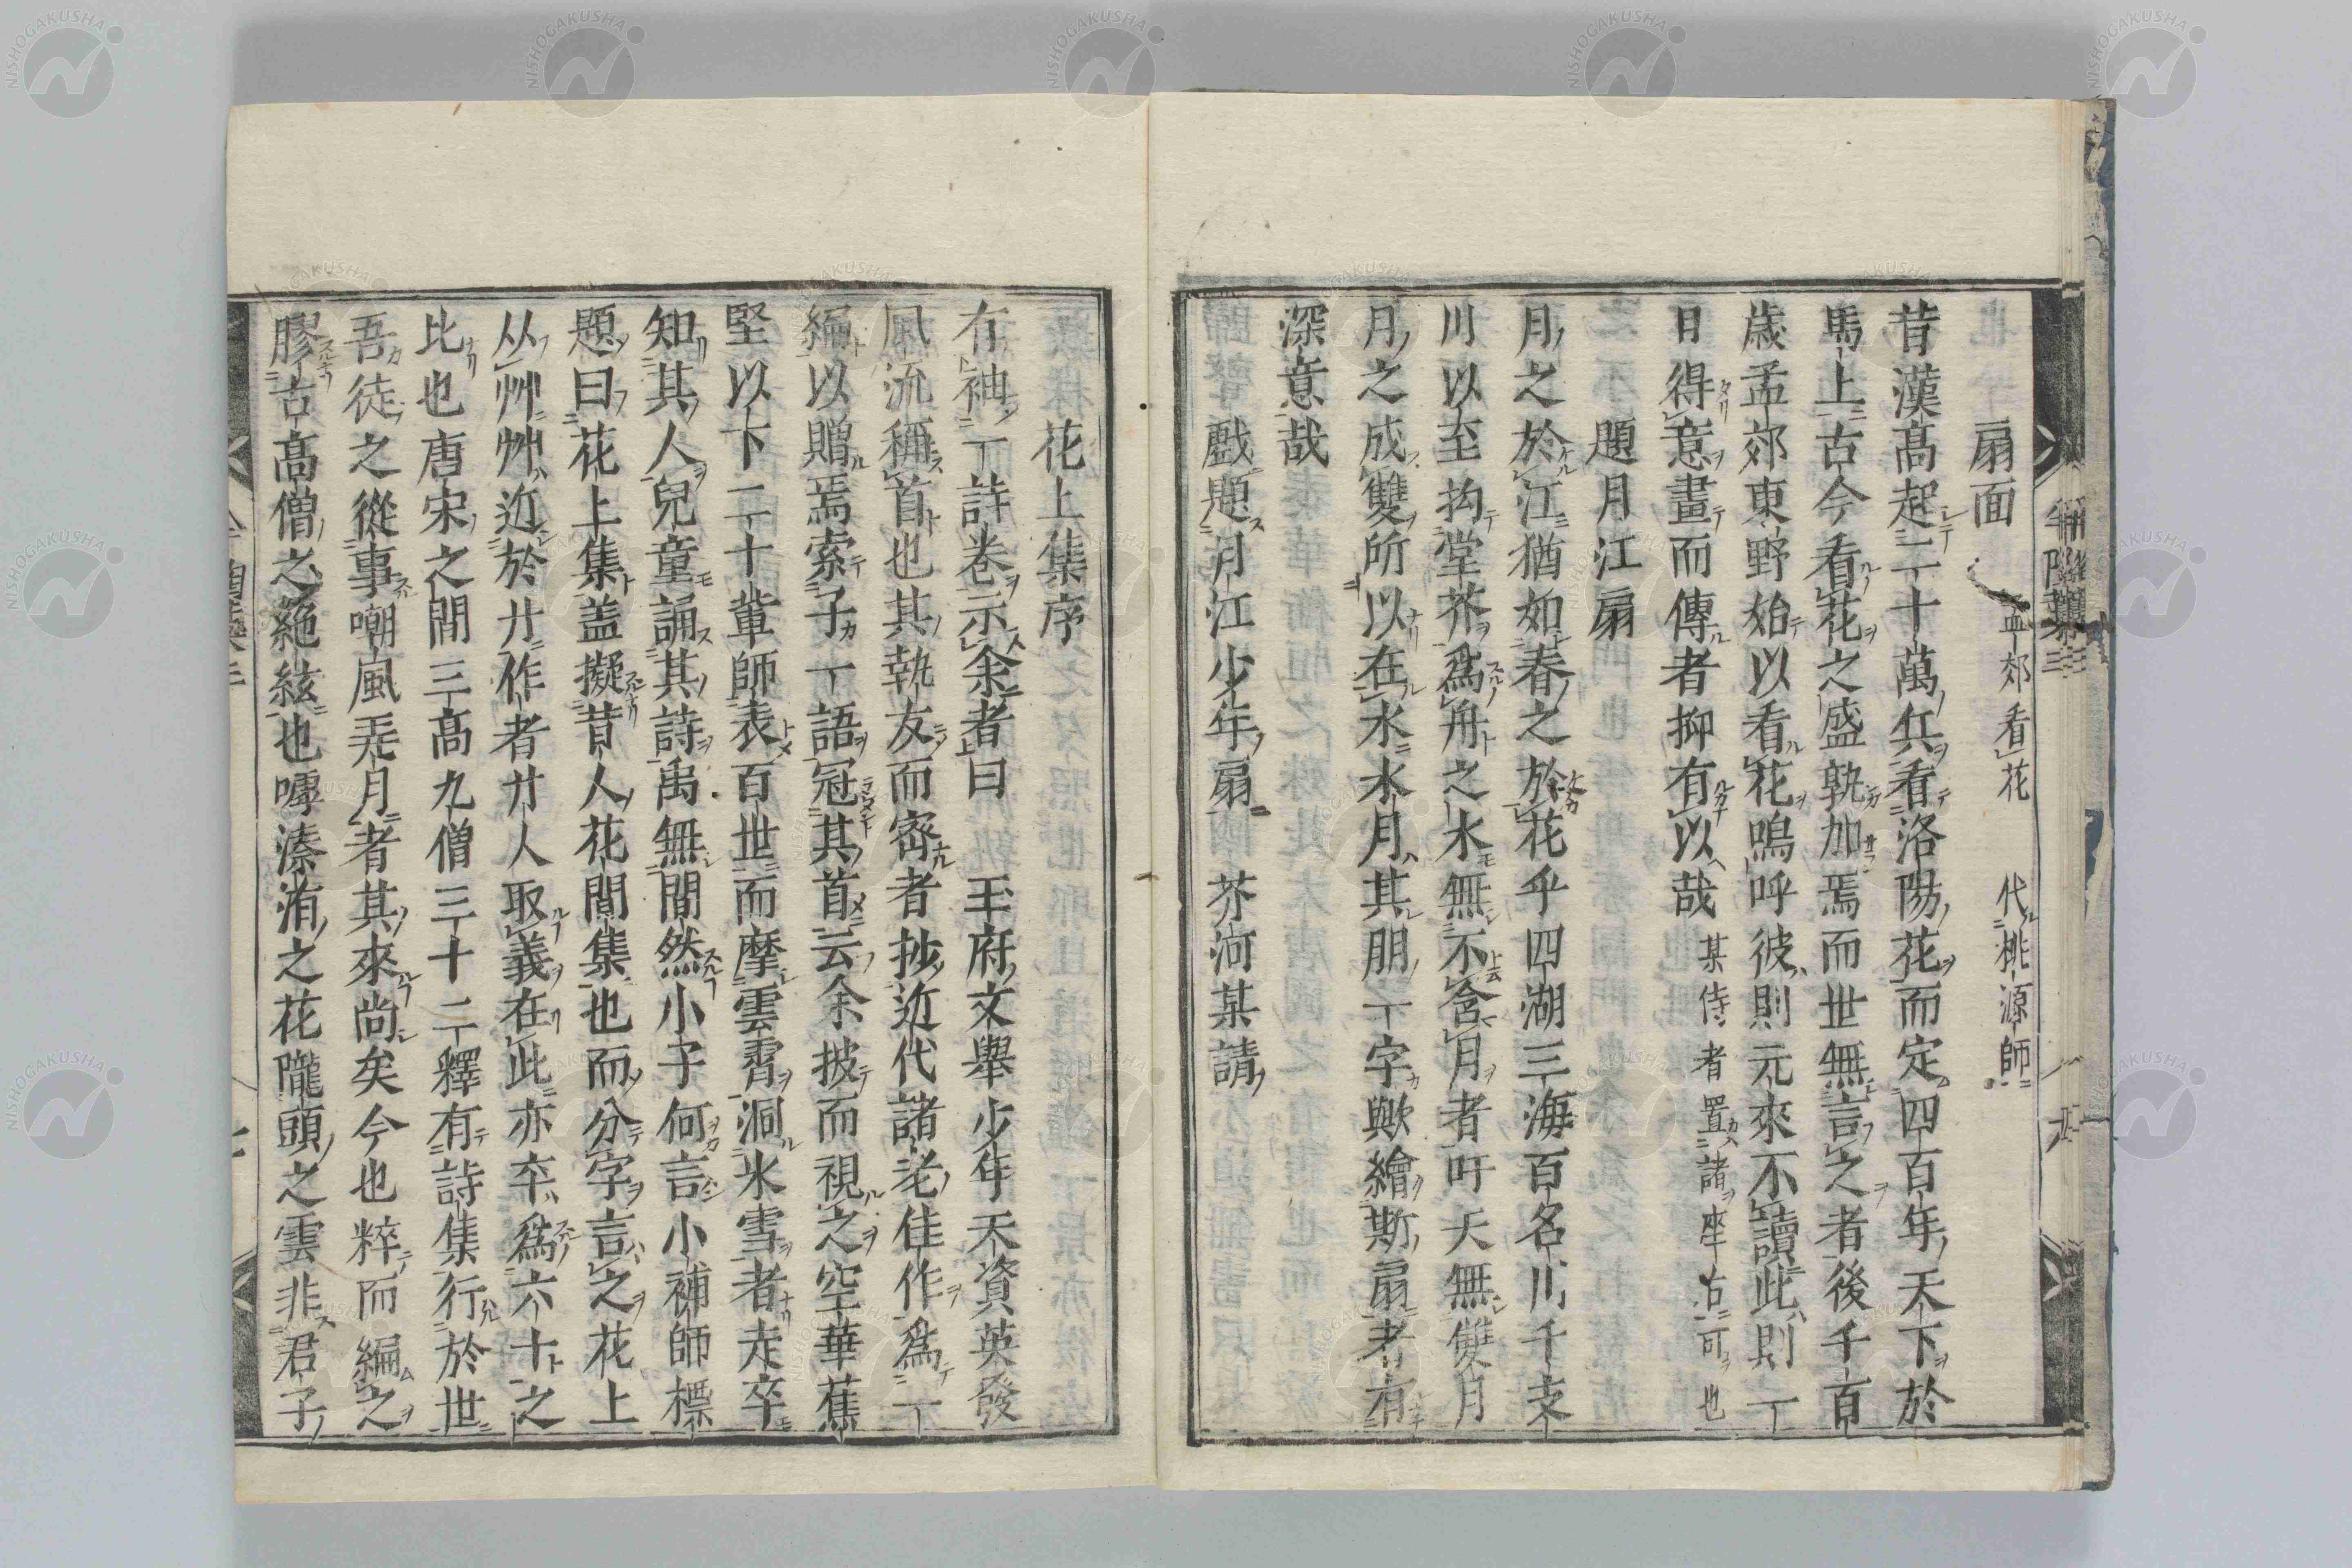 扇面 孟郊看花 代桃源師
昔漢高起二十萬兵看洛陽花而定四百年天下於
馬上古今看花之盛孰加焉而世無言之者後千百
歳孟郊東野始以看花鳴呼彼則元來不讀此則一
日得意畫而傳者抑有以哉 某侍者置諸座右可也
題月江扇
月之於江猶如春之於花乎四湖三海百名川千支
川以至拗堂芥爲舟之水無不含月者吁天無雙月
月之成雙所以在水水月其朋一字歟繪斯扇者有
深意哉
戲題月江少年扇 芥河某請
花上集序
有袖一詩卷示余者曰 王府文舉少年天資英發
風流稱首也其執友而密者抄近代諸老佳作爲一
編以贈焉索子一語冠其首云余披而視之空華蕉
堅以下二十輩師表百世而摩雲霄洞氷雪者走卒
知其人兒童誦其詩禹無間然小子何言小補師標
題曰花上集盖擬昔人花間集也而分字言之花上
从艸艸近於廾作者廿人取義在此亦卒爲六十之
比也唐宋之間三高九僧三十二釋有詩集行於世
吾徒之從事嘲風弄月者其來尚矣今也粹而編之
膠古高僧之絶絃也嘑溱洧之花隴頭之雲非君子